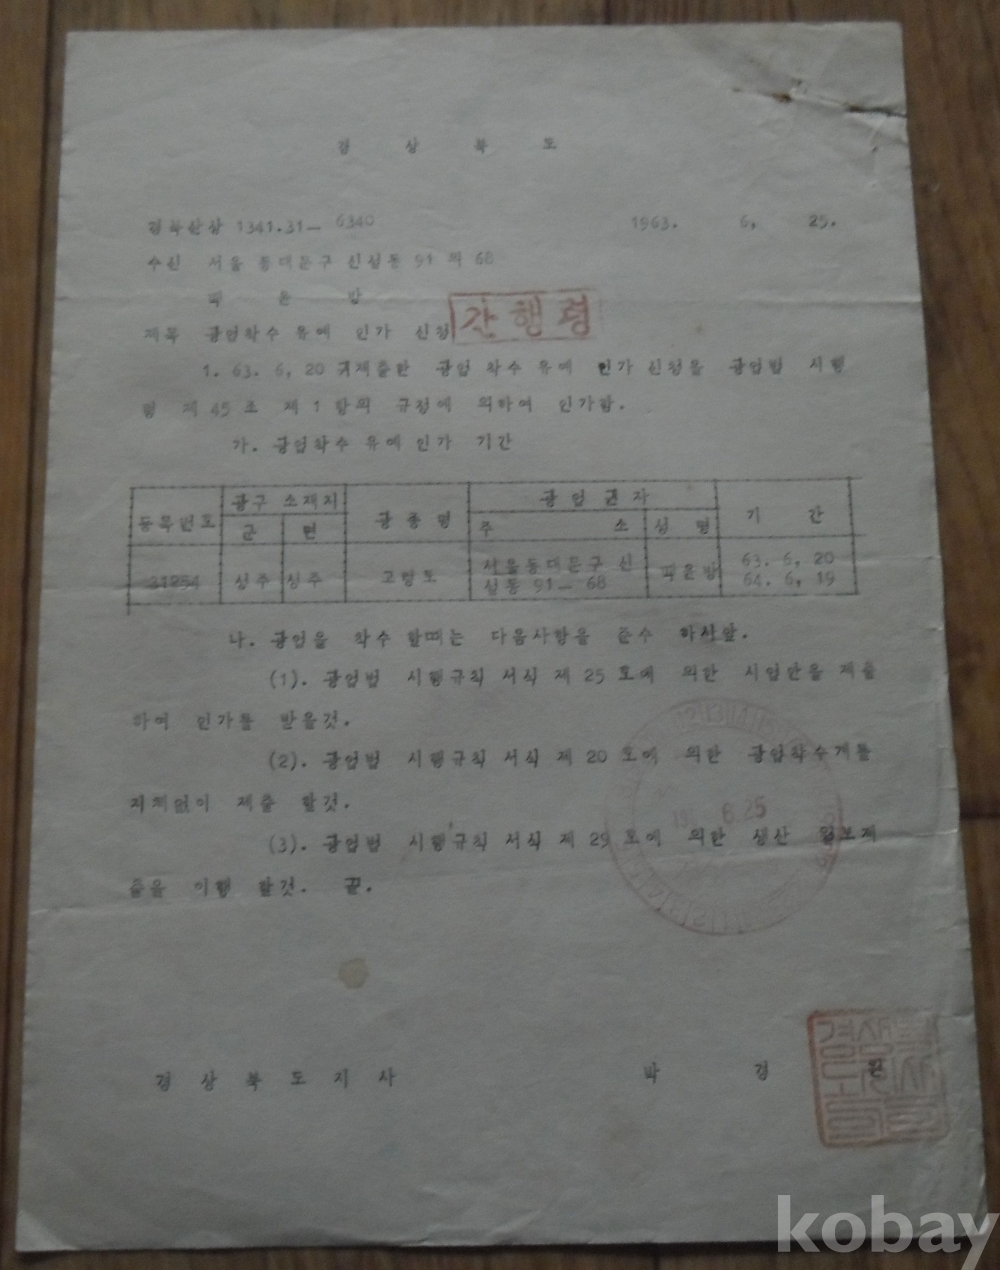 경 상 북 도
경북산상 1341.31— 6340 1963. 6, 25.
수신 서울 동대문구 신설동 91 의 68
윤 방
제목 광업착수 유예 인가 신청
간행령
1. 63. 6, 20 제출한 광업 착수 유예 인가 신청을 광업법 시행
령 제 45 조 제 1 항의 규정에 의하여 인가함.
가. 광업착수 유예 인가 기간
등록번호 광구 소재지 광 종 명 광 업 권 자 기 간
군 면 주 소 성 명
31254 성주 성주 고령토 서울동대문구 신 63. 6, 20
설동 91— 68 64. 6, 19
나. 광업을 착수 할때는 다음사항을 준수 하시앞.
(1). 광업법 시행규칙 서식 제 25 호에 의한 시업안을 제출
하여 인가를 받을것.
(2). 광업법 시행규칙 서식 제 20 호에 의한 광업착수계를
지체없이 제출 할것.
(3). 광업법 시행규칙 서식 제 29 호에 의한 생산 월보제
출을 이행 할것. 끝.
6.25
경 상 북 도 지 사 박 경 원
kobay